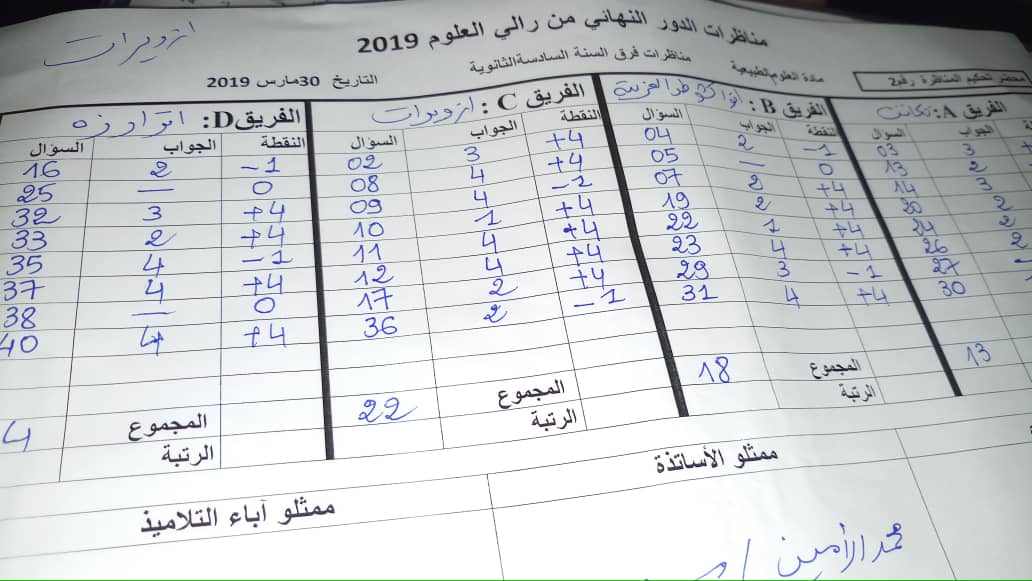 ازويرات
مناظرات الدور النهائي من رالي العلوم 2019
مناظرات فرق السنة السادسة الثانوية
التاريخ 30 مارس 2019
مادة العلوم الطبيعية
محضر تحكيم المناظرة رقم2
الفريق A: تكانت
السؤال الجواب
03 3
13 2
14 3
20 2
24 2
26 2
27
30
13
الفريق B:
السؤال الجواب النقطة
04 2 -1
05 — 0
07 2 +4
19 2 +4
22 1 +4
23 4 +4
29 3 -1
31 4 +4
المجموع 18
الرتبة
الفريق C: ازويرات
السؤال الجواب النقطة
02 3 +4
08 4 +4
09 4
10 1 +4
11 4 +4
12 4 +4
17 2 +4
36 2 -1
المجموع 22
الرتبة
الفريق D: اترارزه
السؤال الجواب النقطة
16 2 -1
25 — 0
32 3 +4
33 2 +4
35 4 -1
37 4 +4
38 — 0
40 4 +4
المجموع 4
الرتبة
ممثلو الأساتذة
ممثلو آباء التلاميذ
محمد الأمين